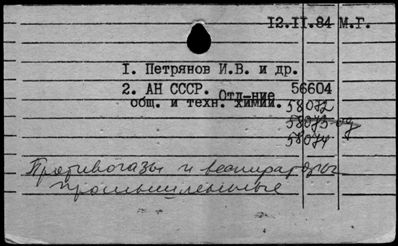 12.II.84 М.Г.
1. Петрянов И.В. и др.
2. АН СССР. Отд-ние 56604
общ. и техн. химии. 58072
58073-од
58074
Противогазы и респираторы
промышленные